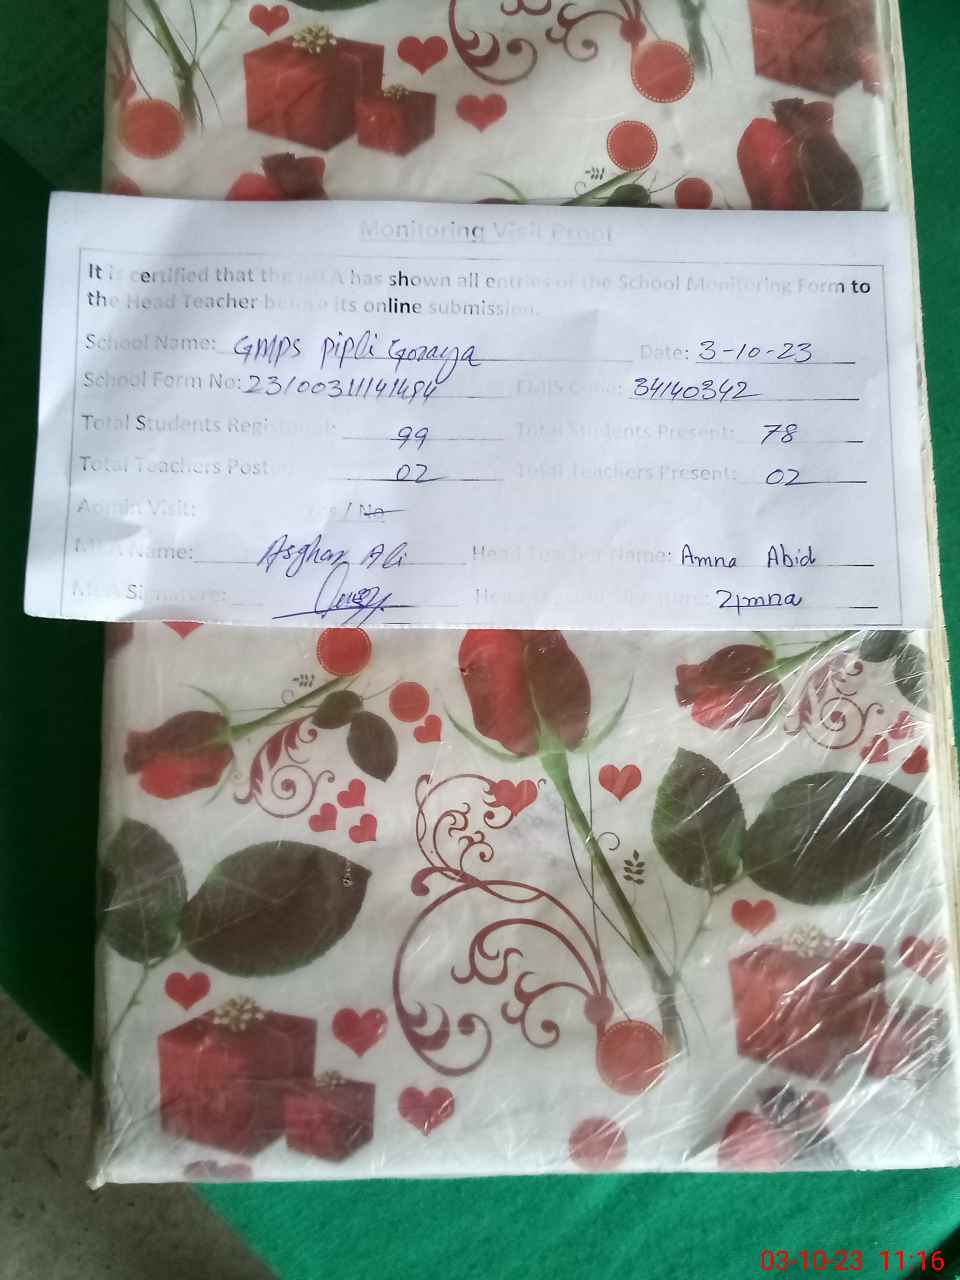 Monitoring Visit Proof
It is certified that the MEA has shown all entries of the School Monitoring Form to
the Head Teacher before its online submission.
School Name: GMPS Pipli Goraya Date: 3-10-23
School Form No: 23100311141494 EMIS Code: 34140342
Total Students Registered: 99 Total Students Present: 78
Total Teachers Posted: 02 Total Teachers Present: 02
Admin Visit: Yes / No
MEA Name: Asghar Ali Head Teacher Name: Amna Abid
MEA Signature: Head Teacher Signature: Amna
03-10-23 11:16